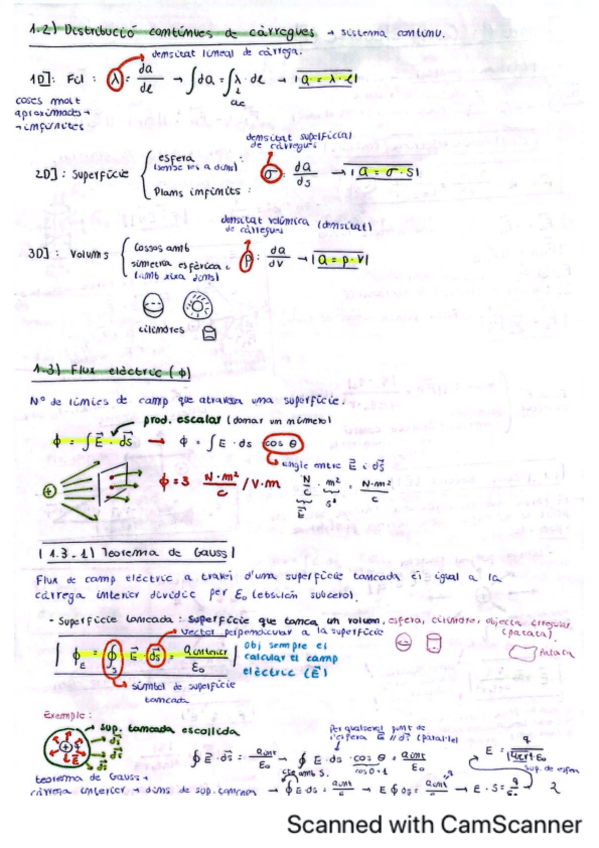 1.2) Distribució contínues de càrregues → sistema continu.
densitat lineal de càrrega.
1D]: Fil : λ = dQ/dl → ∫dQ = ∫λ·dl → |Q = λ·l|
coses molt
aproximades →
densitat superficial
de càrregues
2D]: Superfície { esfera
Plans infinits :
σ = dQ/ds → |Q = σ·S|
densitat volúmica (densitat)
de càrregues
3D]: Volums { Cossos amb
simetria esfèrica :
ρ = dQ/dV → |Q = ρ·V|
cilindres
1.3) Flux elèctric (ϕ)
Nº de línies de camp que atravesa una superfície.
prod. escalar (donar un número)
ϕ = ∫E⃗·ds⃗ → ϕ = ∫E·ds cos θ
angle entre E⃗ i ds⃗
N·m²/C / V·m N/C · m² = N·m²/C
E⃗ s²
|1.3.1) Teorema de Gauss|
Flux de camp elèctric a través d'una superfície tancada és igual a la
càrrega interior dividit per ε₀ (èpsilon subzero).
- Superfície tancada : superfície que tanca un volum, esfera, cilindre, objecte irregular
(patata).
vector perpendicular a la superfície
ϕE = ∮s E⃗·ds⃗ = Qinterior/ε₀
Obj sempre és
calcular el camp
elèctric (E⃗)
Patata
símbol de superfície
tancada
Exemple :
sup. tancada escollida
Per qualsevol punt de
l'esfera E⃗ // ds⃗ (paral·lel)
∮E⃗·ds⃗ = Qint/ε₀ → ∮E·ds·cos θ = Qint/ε₀
cos 0 = 1
sup. de esfera
teorema de Gauss →
càrrega interior → dins de sup. tancada → ∮E ds = Qint/ε₀ → E∮ds = Qint/ε₀ → E·S =
Scanned with CamScanner